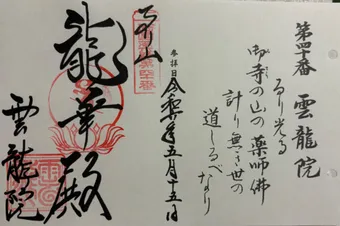 第四十番 雲龍院
るり光る
御寺の山の薬師佛
計り無き世の
道しるべなり
参拝日
令和 年五月十五日
龍華殿
雲龍院